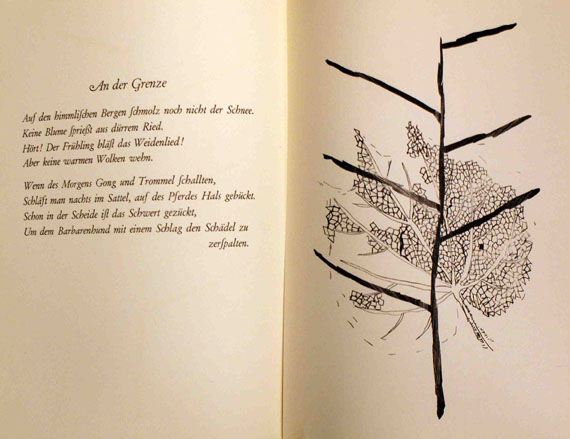 An der Grenze
Auf den himmliſchen Bergen ſchmolz noch nicht der Schnee.
Keine Blume ſprießt aus dürrem Ried.
Hört! Der Frühling bläſt das Weidenlied!
Aber keine warmen Wolken wehn.
Wenn des Morgens Gong und Trommel ſchallten,
Schläft man nachts im Sattel, auf des Pferdes Hals gebückt.
Schon in der Scheide iſt das Schwert gezückt,
Um dem Barbarenhund mit einem Schlag den Schädel zu
zerſpalten.